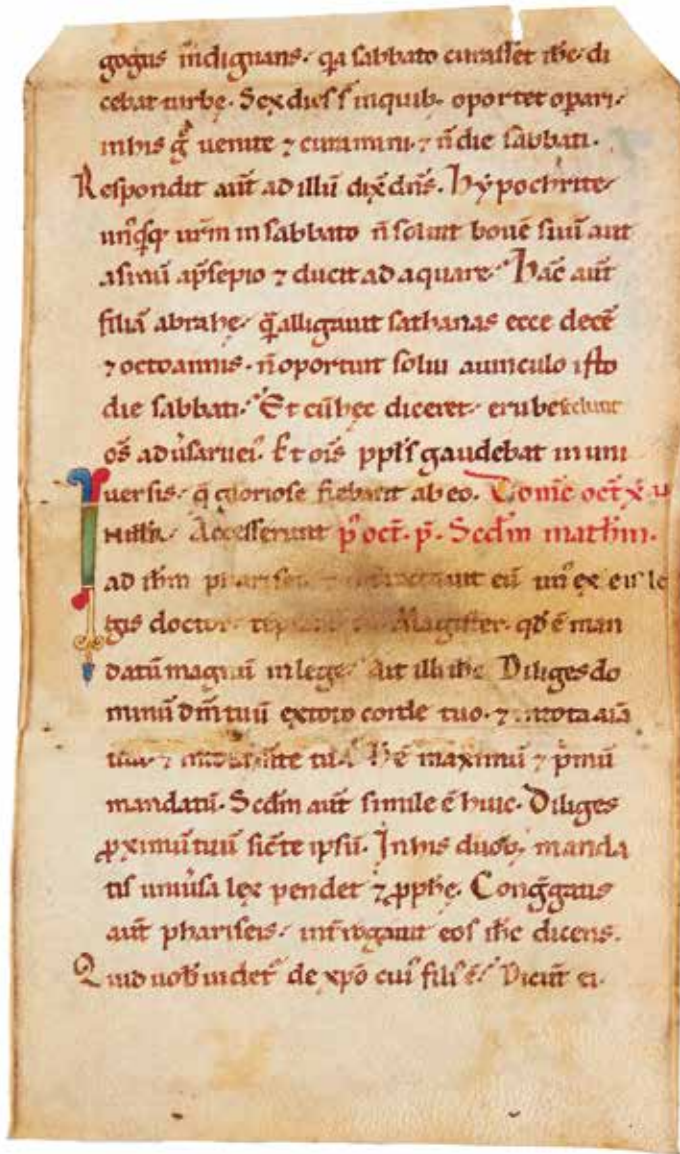 gogus indignans. qa sabbato curasset ihc. di
cebat turbe. Sex dies s̄ inquib; oportet opari.
in his g̊ uenite ⁊ curamini. ⁊ n̄ die sabbati.
Respondit aut̄ ad illū dix̄ dn̄s. hypochrite.
un̄qsq; ur̄m in sabbato n̄ soluit bouē suū aut
asinū ap̄sepio ⁊ ducit ad aquare. hāc aut̄
filiā abrahe. q̄ alligauit sathanas ecce decē
⁊ octo annis. n̄ oportuit solui a uinculo isto
die sabbati. Et cū hec diceret. erubescebant
om̄s aduersarii ei᾿. Et om̄s ppl̄s gaudebat in uni
uersis. q̄ gloriose fiebant ab eo. Domīc oct̄ x u
In illo. Accesserunt p᾿ oct̄. p̄. Scdm mathm.
ad ihm pharisei. eū un᾿ ex eis le
gis doctor. Magister. qd̄ ē man
datū magnū in lege. Ait illi ihc. Diliges do
minū dm̄ tuū ex toto corde tuo. ⁊ in tota aīa
tua. ⁊ in tota m̄te tua. h̄ ē maximū ⁊ p̄mū
mandatū. Scdm aut̄ simile ē huic. Diliges
ꝓximū tuū sic̄ te ipsū. In his duob; manda
tis uniu̇sa lex pendet ⁊ ꝓph̄e. Cong̃gatis
aut̄ phariseis. int̄rogauit eos ihc dicens.
Quid uob̄ uidet᾿ de xp̄o cui᾿ fili᾿ ē. Dicūt ei.